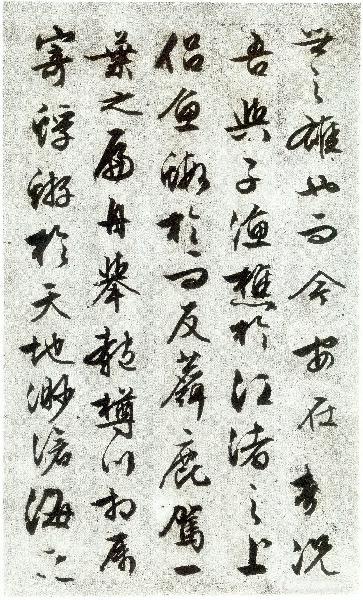 世之雄也而今安在哉況
吾與子漁樵於江渚之上
侶魚蝦於而友麋鹿駕一
葉之扁舟舉匏樽以相屬
寄蜉蝣於天地渺滄海之